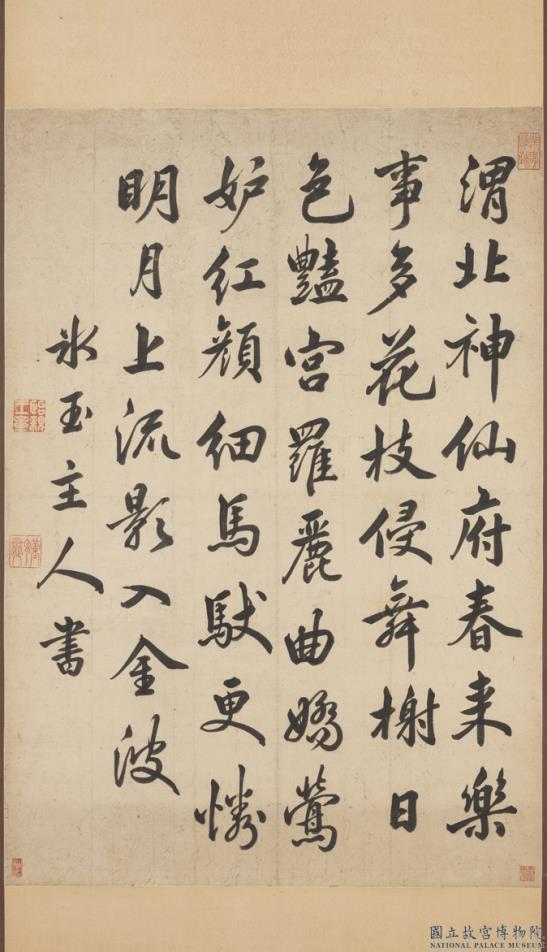 渭北神仙府春来樂
事多花枝侵舞榭日
色豔宫羅麗曲嬌鶯
妒红顔细馬馱更憐
明月上流影入金波
冰玉主人書
國立故宮博物院
NATIONAL PALACE MUSEUM